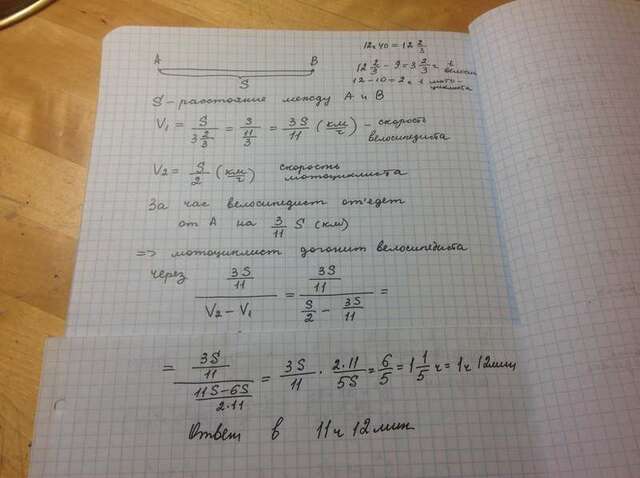 12ч 40 = 12 2/3
12 2/3 - 9 = 3 2/3 = t велосип
12 - 10 = 2 = t мото-
циклиста
A B
S
S - расстояние между A и B
V1 = S / 3 2/3 = 3 / 11/3 = 3S/11 (км/ч) - скорость
велосипедиста
V2 = S/2 (км/ч) скорость
мотоциклиста
За час велосипедист отъедет
от A на 3/11 S (км)
=> мотоциклист догонит велосипедиста
через 3S/11 / V2 - V1 = 3S/11 / S/2 - 3S/11 =
= 3S/11 / 11S-6S/2·11 = 3S/11 · 2·11/5S = 6/5 = 1 1/5 ч = 1ч 12мин
Ответ в 11ч 12мин